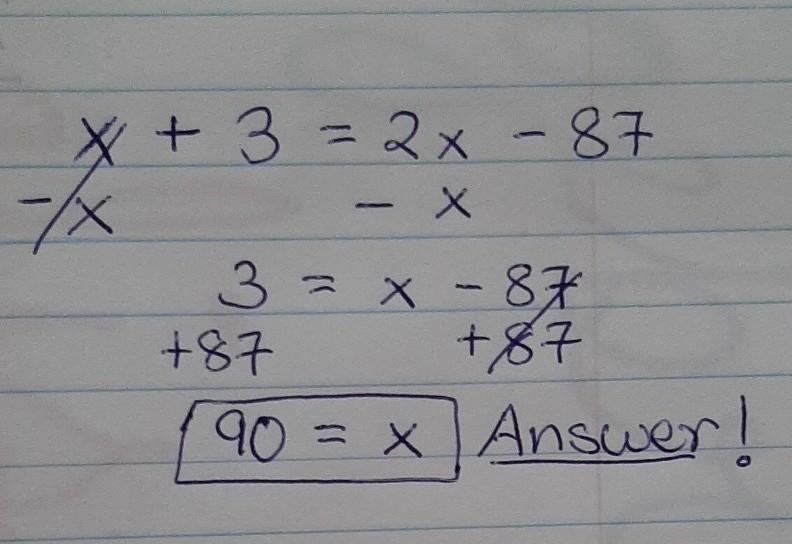 x + 3 = 2x - 87
-x - x
3 = x - 87
+87 +87
90 = x Answer!